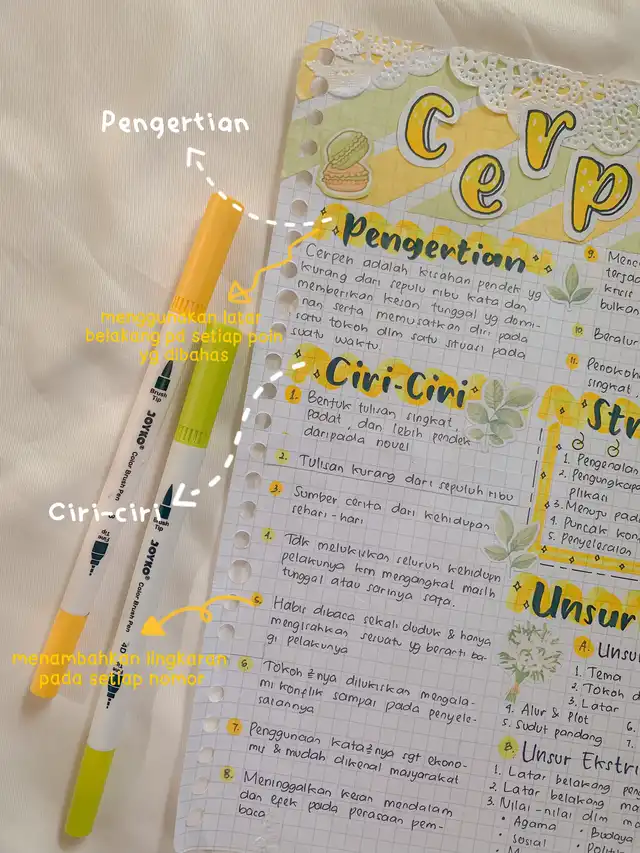 Pengertian
menggunakan latar
belakang pa setiap poin
yg dibahas
Ciri-ciri
menambahkan lingkaran
pada setiap nomor
Brush
Tip
JOYKO®
Color Brush Pen
Fine
Tip
Brush
Tip
JOYKO®
Color Brush Pen
Cerp
Pengertian
Cerpen adalah kisahan pendek yg
kurang dari sepulu ribu kata dan
memberikan kesan tunggal yg domi-
nan serta memusatkan diri pada
satu tokoh dlm satu situasi pada
suatu waktu
Ciri-Ciri
1. Bentuk tulisan singkat,
padat, dan lebih pendek
daripada novel
2. Tulisan kurang dari sepuluh ribu
3. Sumber cerita dari kehidupan
sehari-hari
4. Tdk melukiskan seluruh kehidupn
pelakunya krn mengangkat maslh
tunggal atau sarinya saja.
5. Habis dibaca sekali duduk & hanya
mengisahkan sesuatu yg berarti ba-
gi pelakunya
6. Tokoh ²nya dilukiskan mengala-
mi konflik sampai pada penyele-
saiannya
7. Penggunaan kata²nya sgt ekono-
mis & mudah dikenal masyarakat
8. Meninggalkan kesan mendalam
dan efek pada perasaan pem-
baca
9. Menc
terjad
krisis
bulkan
10. Beralur
11. Penokoh
singkat.
Str
1. Pengenalan
2. Pengungkapa
plikasi
3. Menuju pada
4. Puncak kon
5. Penyelesaian
Unsur
A. Unsu
1. Tema
2. Tokoh d
3. Latar
4. Alur & Plot
5. Sudut pandang
6.
7.
B. Unsur Ekstri
1. Latar belakang pen
2. Latar belakang ma
3. Nilai-nilai dlm ma
• Agama
• Budaya
• Sosial
• Politi